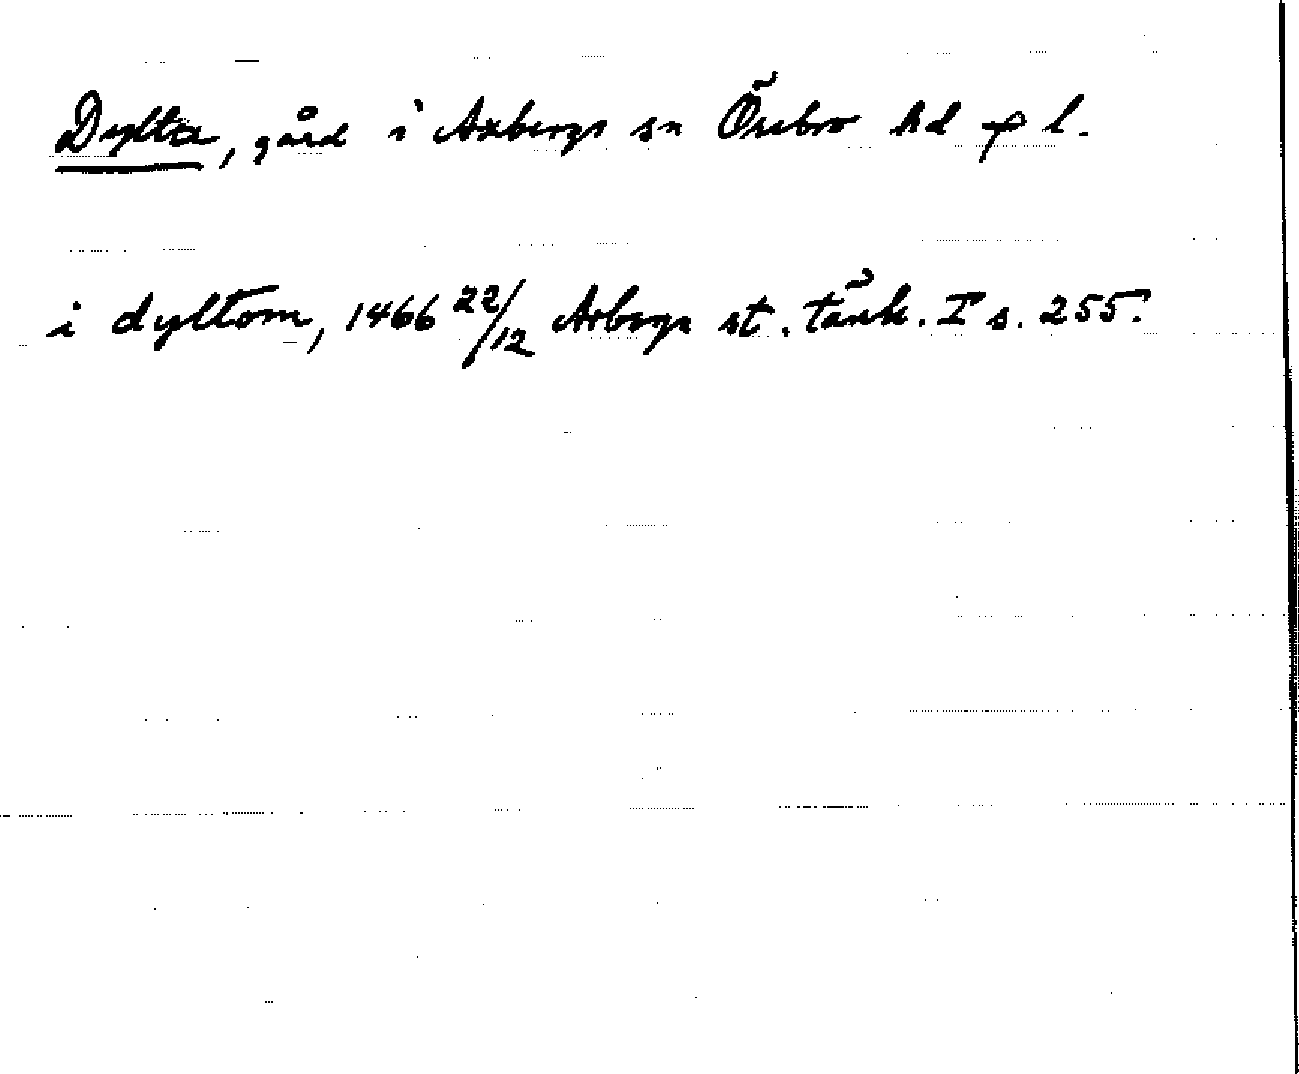 Dylta, gård i Axbergs sn Örebro hd o l.
i dyltom, 1466 22/12 Arboga st. tänk. I s. 255.